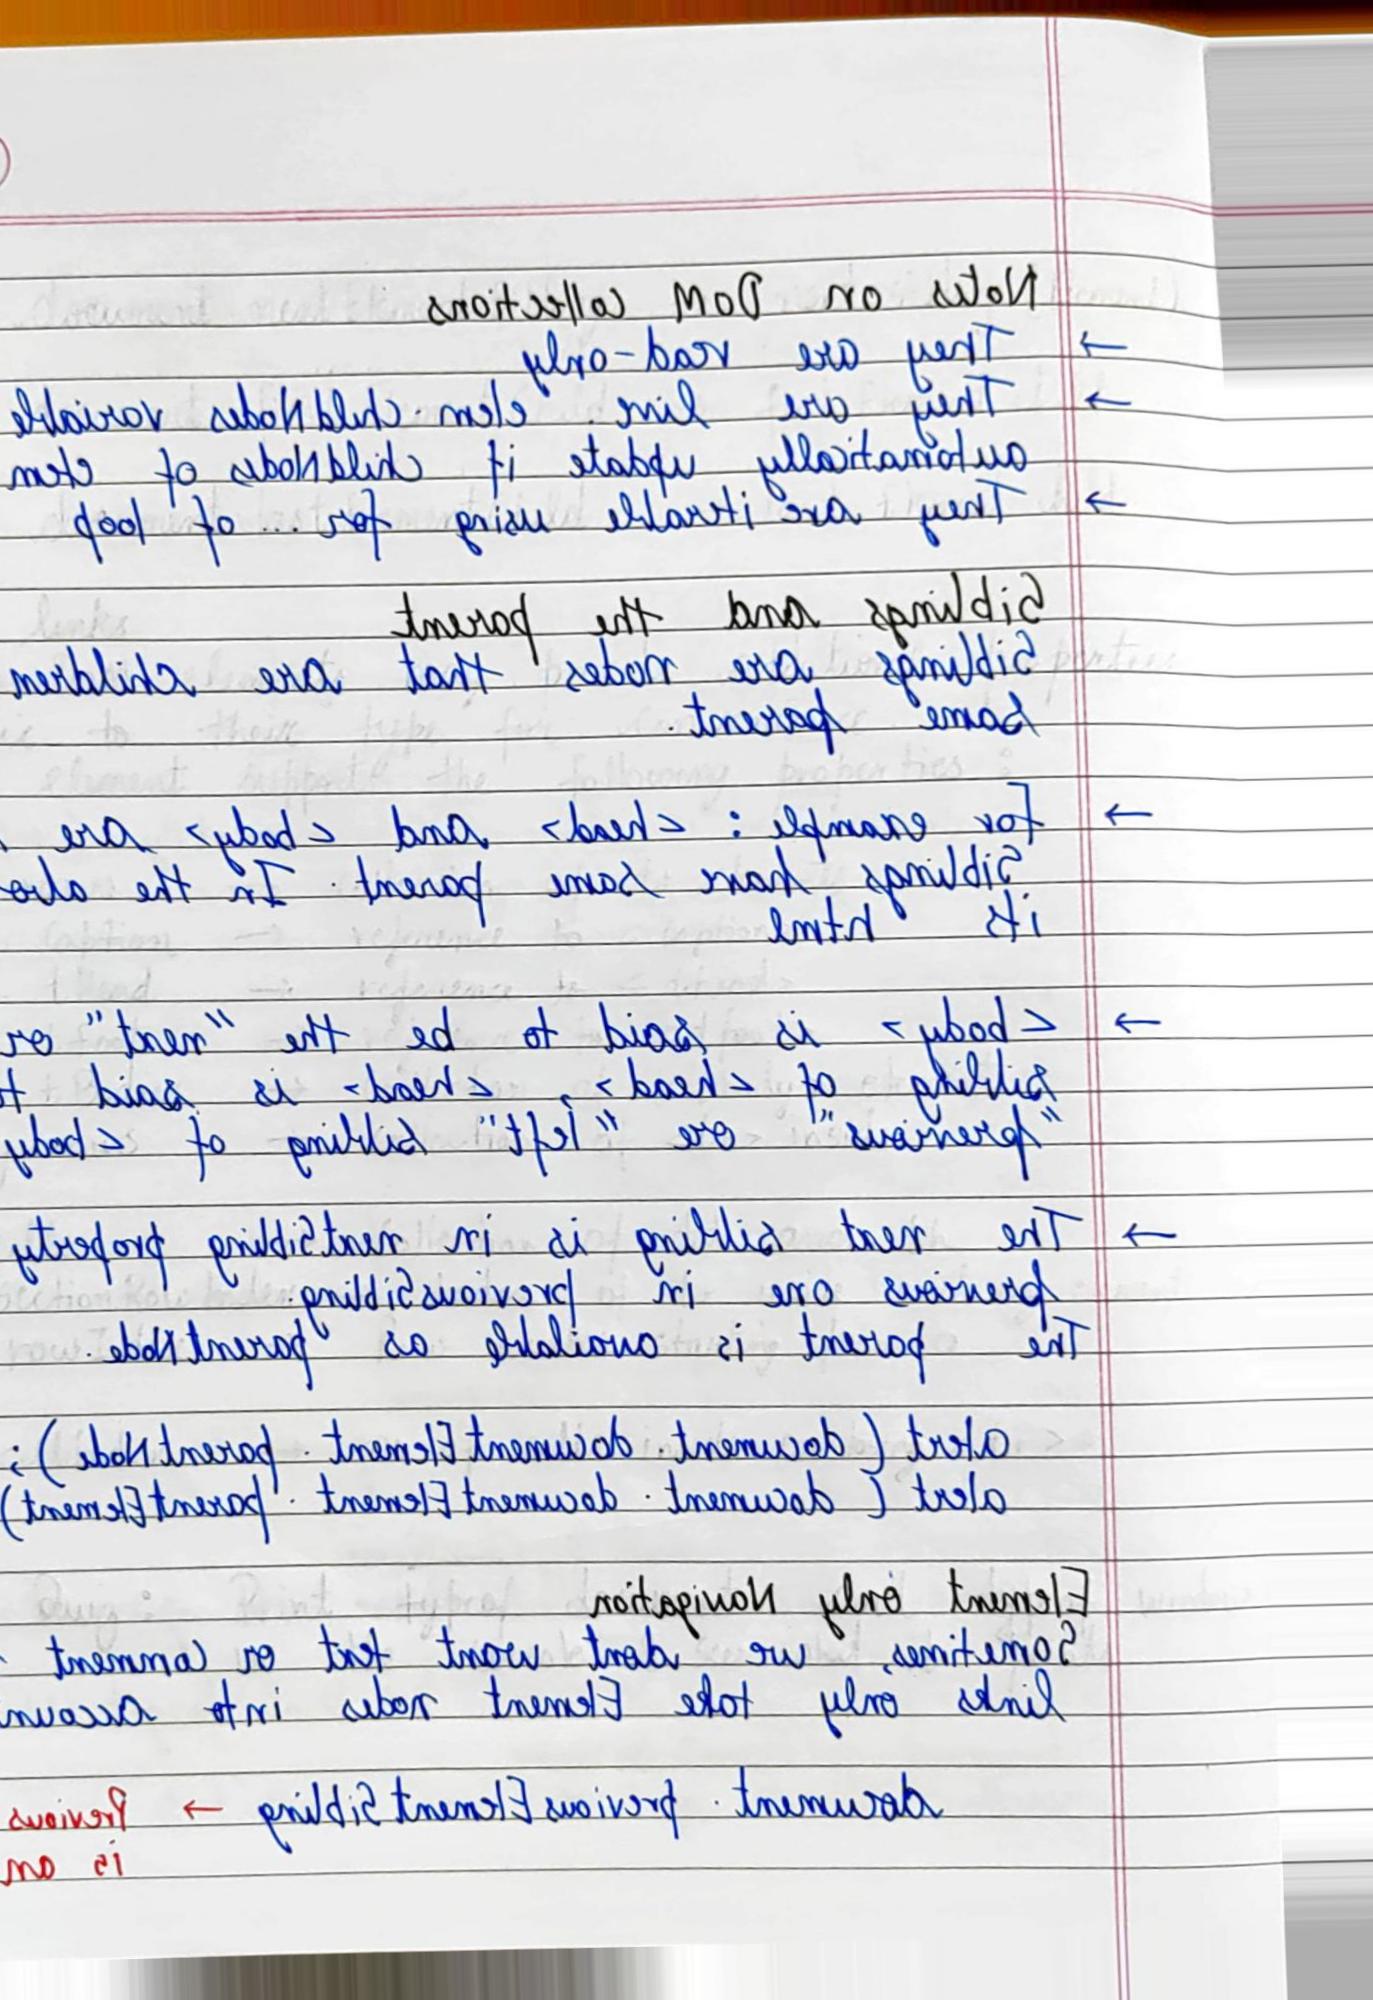 Notes on DOM collections
→ They are read-only
→ They are live. elem.childNodes variable
automatically update if childNodes of elem
→ They are iterable using for... of loop
Siblings and the parent
Siblings are nodes that are children
same parent.
→ For example: <head> and <body> are
siblings have same parent. In the
its html
→ <body> is said to be the "next" or
sibling of <head>, <head> is said
"previous" ore "left" sibling of <body
→ The next sibling is in nextSibling property
previous one in previousSibling.
The parent is available as parentNode.
alert (document. documentElement. parentNode);
alert ( document. documentElement. parentElement)
Element only Navigation
Sometimes, we dont want text or comment
links only take Element nodes into accoun
document. previousElementSibling → Previous
is an